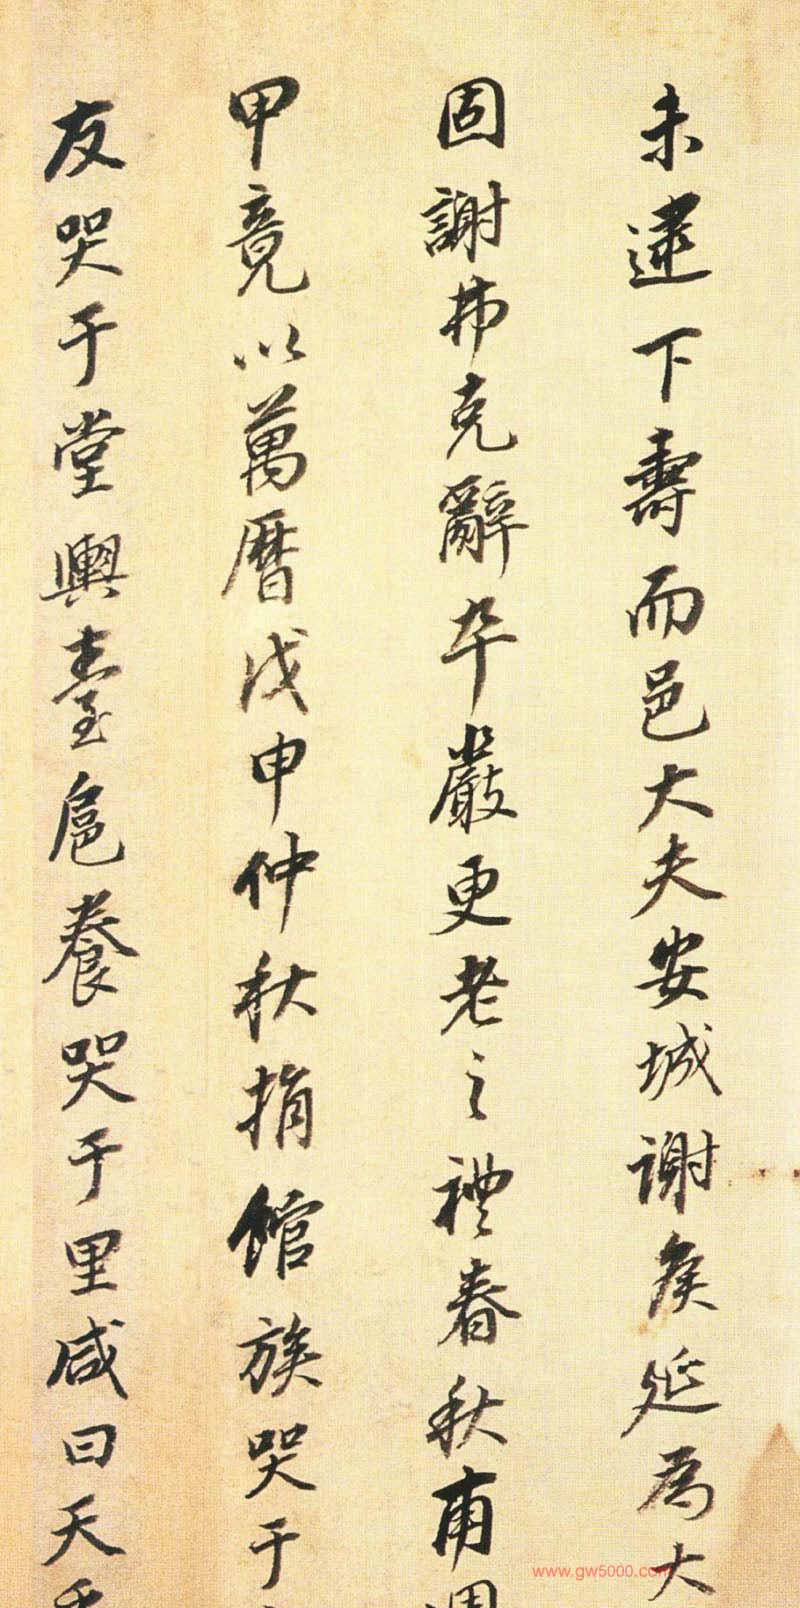 未逮下壽而邑大夫安城謝矦延為大
固謝弗克辭卒嚴更老之禮春秋甫週
甲竟以萬曆戊申仲秋捐館族哭于
友哭于堂輿臺扈養哭于里咸曰天
www.gw5000.com